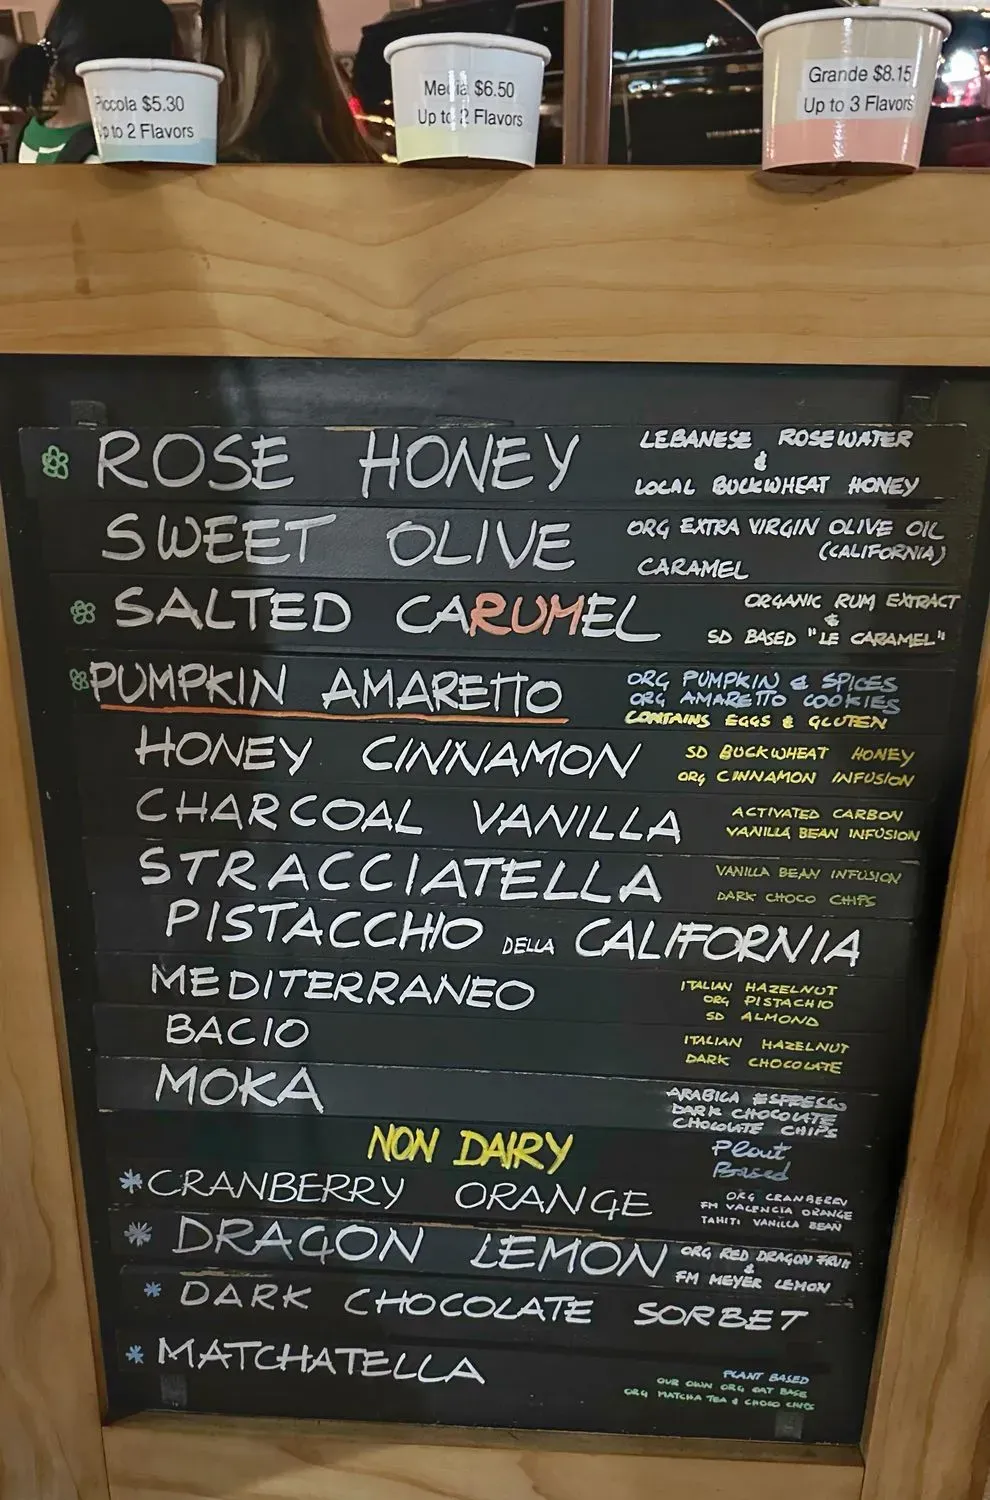 Piccola $5.30
Up to 2 Flavors
Media $6.50
Up to 2 Flavors
Grande $8.15
Up to 3 Flavors
ROSE HONEY
LEBANESE ROSEWATER
&
LOCAL BUCKWHEAT HONEY
SWEET OLIVE
ORG EXTRA VIRGIN OLIVE OIL
(CALIFORNIA)
CARAMEL
SALTED CARUMEL
ORGANIC RUM EXTRACT
&
SD BASED "LE CARAMEL"
PUMPKIN AMARETTO
ORG PUMPKIN & SPICES
ORG AMARETTO COOKIES
CONTAINS EGGS & GLUTEN
HONEY CINNAMON
SD BUCKWHEAT HONEY
ORG CINNAMON INFUSION
CHARCOAL VANILLA
ACTIVATED CARBON
VANILLA BEAN INFUSION
STRACCIATELLA
VANILLA BEAN INFUSION
DARK CHOCO CHIPS
PISTACCHIO DELLA CALIFORNIA
MEDITERRANEO
ITALIAN HAZELNUT
ORG PISTACHIO
SD ALMOND
BACIO
ITALIAN HAZELNUT
DARK CHOCOLATE
MOKA
ARABICA ESPRESSO
DARK CHOCOLATE
CHOCOLATE CHIPS
NON DAIRY
Plant
Based
CRANBERRY ORANGE
ORG CRANBERRY
FM VALENCIA ORANGE
TAHITI VANILLA BEAN
DRAGON LEMON
ORG RED DRAGON FRUIT
&
FM MEYER LEMON
DARK CHOCOLATE SORBET
MATCHATELLA
PLANT BASED
OUR OWN ORG OAT BASE
ORG MATCHA TEA & CHOCO CHIPS